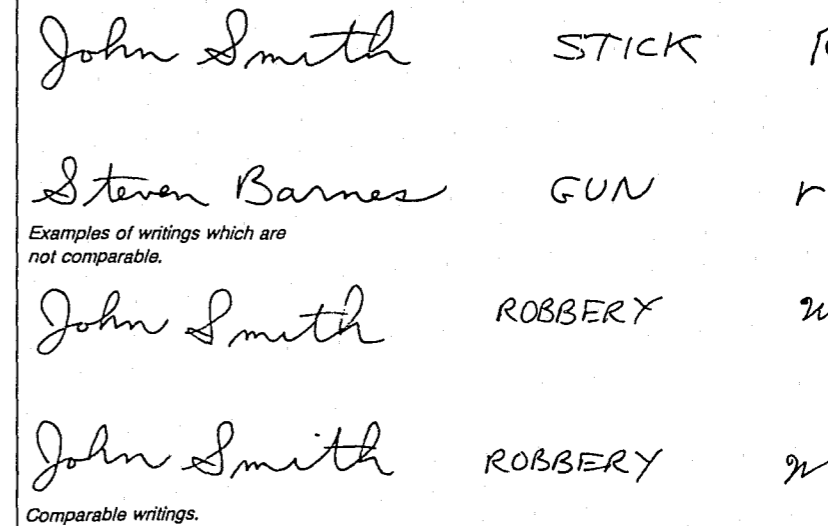 John Smith STICK
Steven Barnes GUN
Examples of writings which are
not comparable.
John Smith ROBBERY
John Smith ROBBERY
Comparable writings.